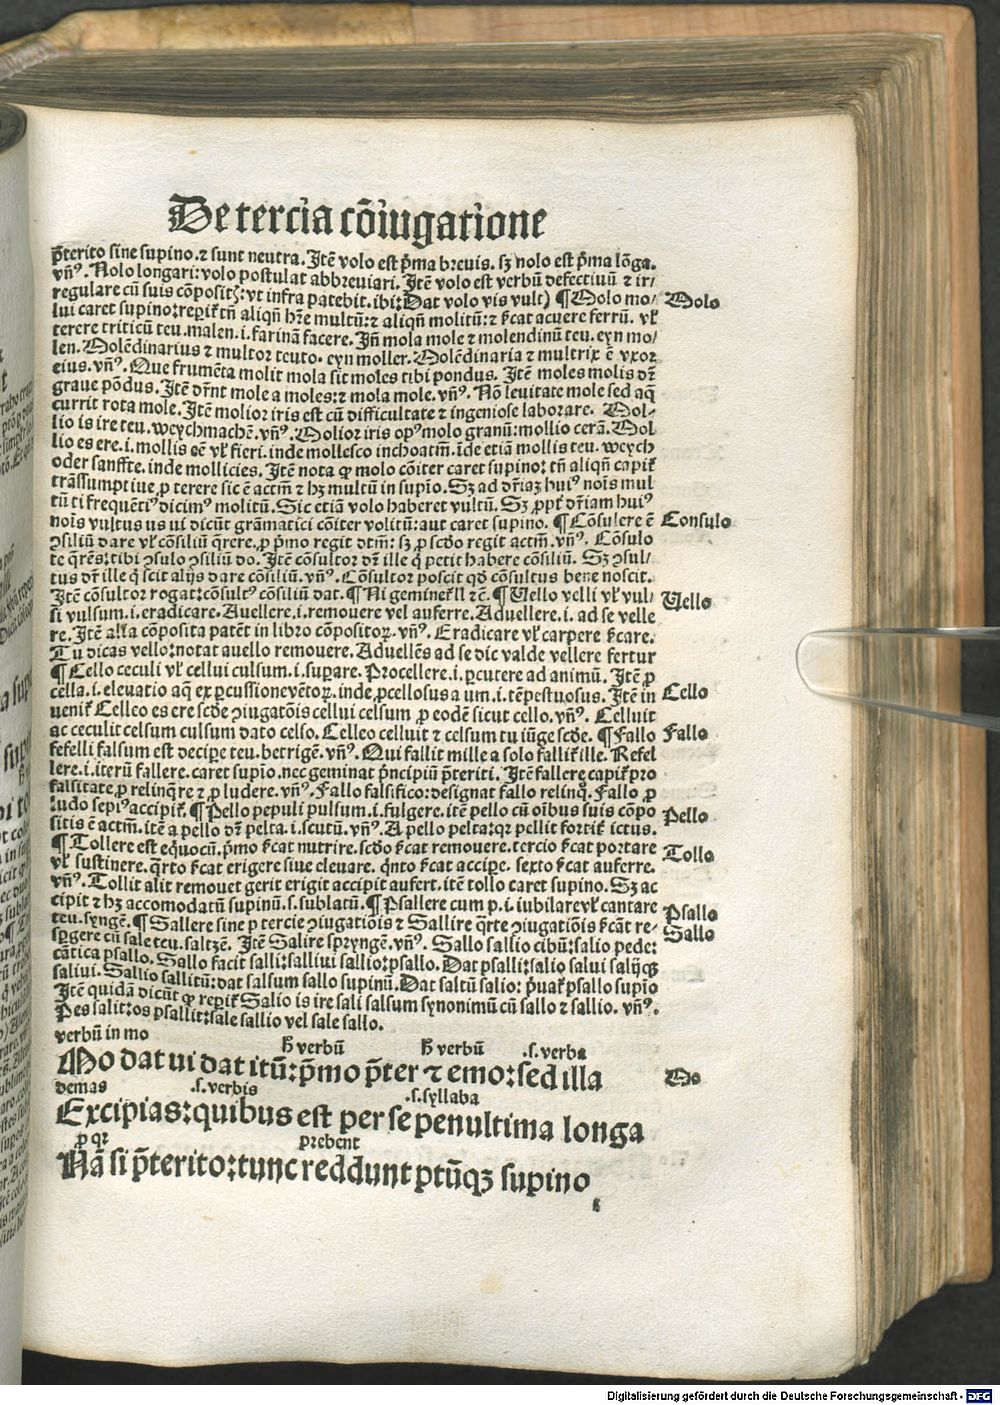 De tercia cõiugatione
p̃terito sine supino. ⁊ sunt neutra. Itẽ volo est p̃ma breuis. sꝫ nolo est p̃ma lõga.
vñꝰ. Nolo longari: volo postulat abbreuiari. Itẽ volo est verbũ defectiuũ ⁊ ir/
regulare cũ suis cõpositꝭ: vt infra patebit. ibi: Dat volo vis vult) ¶ Molo mo/
Molo
lui caret supino: reperiꝉ tñ aliqñ hr̃e multũ: ⁊ aliqñ molitũ: ⁊ ẜcat acuere ferrũ. vꝉ
terere triticũ teu. malen. i. farinã facere. Iñ mola mole ⁊ molendinũ teu. eyn mo/
len. Molẽdinarius ⁊ multor teuto. eyn moller. Molẽdinaria ⁊ multrix ẽ vxor
eius. vñꝰ. Que frumẽta molit mola sit moles tibi pondus. Itẽ moles molis dr̃
graue põdus. Itẽ dr̃nt mole a moles: ⁊ mola mole. vñꝰ. Nõ leuitate mole sed aq̃
currit rota mole. Itẽ molior iris est cũ difficultate ⁊ ingeniose laborare. Mol-
lio is ire teu. weychmachẽ. vñꝰ. Molior iris opꝰ molo granũ: mollio cerã. Mol
lio es ere. i. mollis eẽ vꝉ fieri. inde mollesco inchoatm̃. ide etiã mollis teu. weych
oder sanffte. inde mollicies. Itẽ nota ꝙ molo cõiter caret supino: tñ aliqñ capiꝉ
trãssumptiue, ꝓ terere sic ẽ actm̃ ⁊ hꝫ multũ in supĩo. Sꝫ ad dr̃iaꝫ huiꝰ noĩs mul
tũ ti frequẽtiꝰ dicimꝰ molitũ. Sic etiã volo haberet vultũ. Sꝫ ꝓpt̃ dr̃iam huiꝰ
noĩs vultus us ui dicũt grãmatici cõiter volitũ: aut caret supino. ¶ Cõsulere ẽ
Consulo
ꝯsiliũ dare vꝉ cõsiliũ q̃rere, ꝓ p̃mo regit dtm̃: sꝫ ꝓ scd̃o regit actm̃. vñꝰ. Cõsulo
te q̃rẽs: tibi ꝯsulo ꝯsiliũ do. Itẽ cõsultor dr̃ ille q̃ petit habere cõsiliũ. Sꝫ ꝯsul/
tus dr̃ ille q̃ scit alijs dare cõsiliũ. vñꝰ. Cõsultor poscit qd̃ cõsultus bene noscit.
Itẽ cõsultor rogat: cõsultꝰ cõsiliũ dat. ¶ Ni gemineꝉ l ⁊c̃. ¶ Uello velli vꝉ vul/
Uello
si vulsum. i. eradicare. Auellere. i. remouere vel auferre. Aduellere. i. ad se velle
re. Itẽ alꝉa cõposita patẽt in libro cõpositoꝝ. vñꝰ. Eradicare vꝉ carpere ẜcare.
Tu dicas vello: notat auello remouere. Aduellẽs ad se dic valde vellere fertur
¶ Cello ceculi vꝉ cellui culsum. i. suꝑare. Procellere. i. ꝑcutere ad animũ. Itẽ ꝓ
cella. i. eleuatio aq̃ ex ꝑcussione vẽtoꝝ. inde ꝓcellosus a um. i. tẽpestuosus. Itẽ in
Cello
ueniꝉ Celleo es ere scd̃e ꝯiugatõis cellui celsum ꝓ eodẽ sicut cello. vñꝰ. Celluit
ac ceculit celsum culsum dato celso. Celleo celluit ⁊ celsum tu iũge scd̃e. ¶ Fallo
Fallo
fefelli falsum est deciꝑe teu. betrigẽ. vñꝰ. Qui fallit mille a solo falliꝉ ille. Refel
lere. i. iterũ fallere. caret supĩo. nec geminat p̃ncipiũ p̃teriti. Itẽ fallere capiꝉ pro
falsitate, ꝓ relinq̃re ⁊ ꝓ ludere. vñꝰ. Fallo falsifico: designat fallo relinq̃. Fallo ꝓ
ludo sepiꝰ accipiꝉ. ¶ Pello pepuli pulsum. i. fulgere. itẽ pello cũ oĩbus suis cõpo
Pello
sitis ẽ actm̃. itẽ a pello dr̃ pelta. i. scutũ. vñꝰ. A pello pelta: qꝛ pellit fortiꝉ ictus.
¶ Tollere est eq̃uocũ. p̃mo ẜcat nutrire. scd̃o ẜcat remouere. tercio ẜcat portare
Tollo
vꝉ sustinere. q̃rto ẜcat erigere siue eleuare. q̃nto ẜcat acciꝑe. sexto ẜcat auferre.
vñꝰ. Tollit alit remouet gerit erigit accipit aufert. itẽ tollo caret supino. Sꝫ ac
cipit ⁊ hꝫ accomodatũ supinũ. s. sublatũ. ¶ Psallere cum p. i. iubilare vꝉ cantare
Psallo
teu. syngẽ. ¶ Sallere sine p tercie ꝯiugatiõis ⁊ Sallire q̃rte ꝯiugatiõis ẜcãt re-
Sallo
sꝑgere cũ sale teu. saltzẽ. Itẽ Salire spryngẽ. vñꝰ. Sallo sallio cibũ: salio pede:
cãtica psallo. Sallo facit salli: salliui sallio: psallo. Dat psalli: salio salui salijꝙ
saliui. Sallio sallitũ: dat salsum sallo supinũ. Dat saltũ salio: p̃uaꝉ psallo supĩo
Itẽ quidã dicũt ꝙ reperiꝉ Salio is ire sali salsum synonimũ cũ sallo ⁊ sallio. vñꝰ.
Pes salit: os psallit: sale sallio vel sale sallo.
verbũ in mo
ħ verbũ ħ verbũ .s. verba
Mo dat ui dat itũ: p̃mo p̃ter ⁊ emo: sed illa
Mo
demas .s. verbis .s. syllaba
Excipias: quibus est per se penultima longa
ꝓ qꝛ prebent
Nã si p̃terito: tunc reddunt ptũqꝫ supino
Digitalisierung gefördert durch die Deutsche Forschungsgemeinschaft - DFG